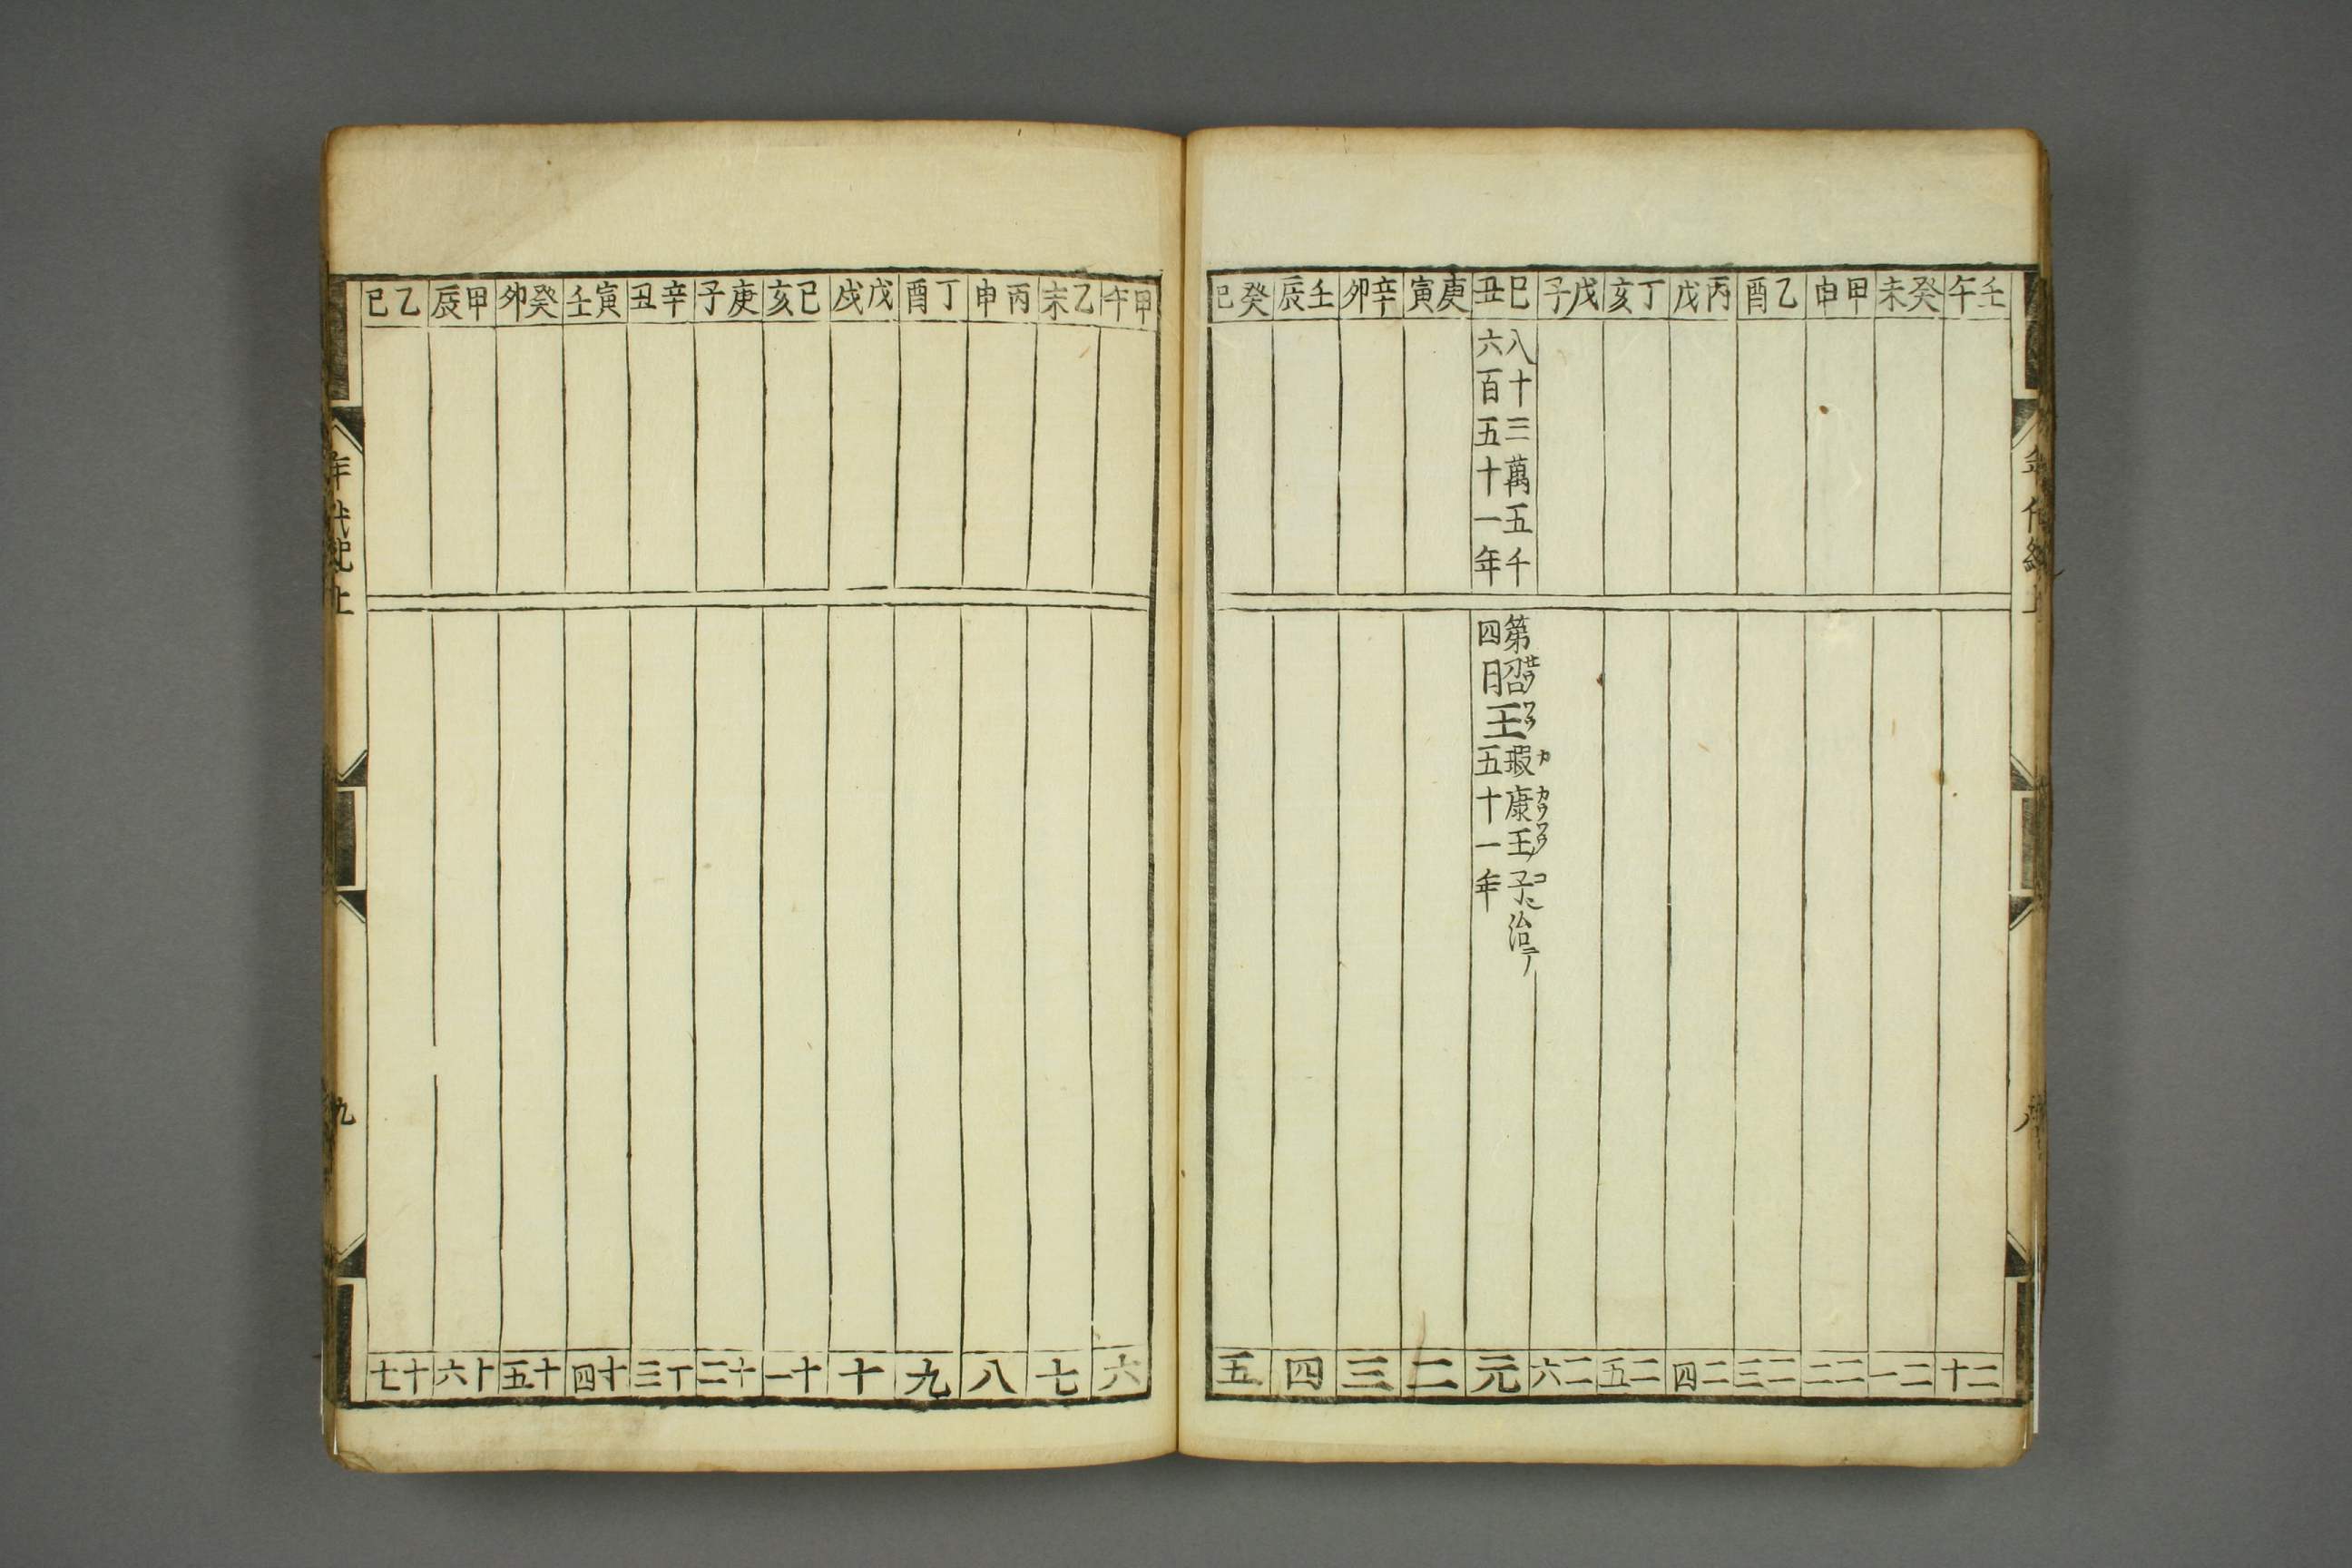 年代紀上
壬午
癸未
甲申
乙酉
丙戌
丁亥
戊子
己丑
庚寅
辛卯
壬辰
癸巳
八十三萬五千
六百五十一年
第四
昭王
セウワウ
瑕康王子ニ治テ
カ カウワウ コ
五十一年
二十
二一
二二
二三
二四
二五
二六
元
二
三
四
五
甲午
乙未
丙申
丁酉
戊戌
己亥
庚子
辛丑
寅壬
癸卯
甲辰
乙巳
六
七
八
九
十
十一
十二
十三
十四
十五
十六
十七
年代紀上
九